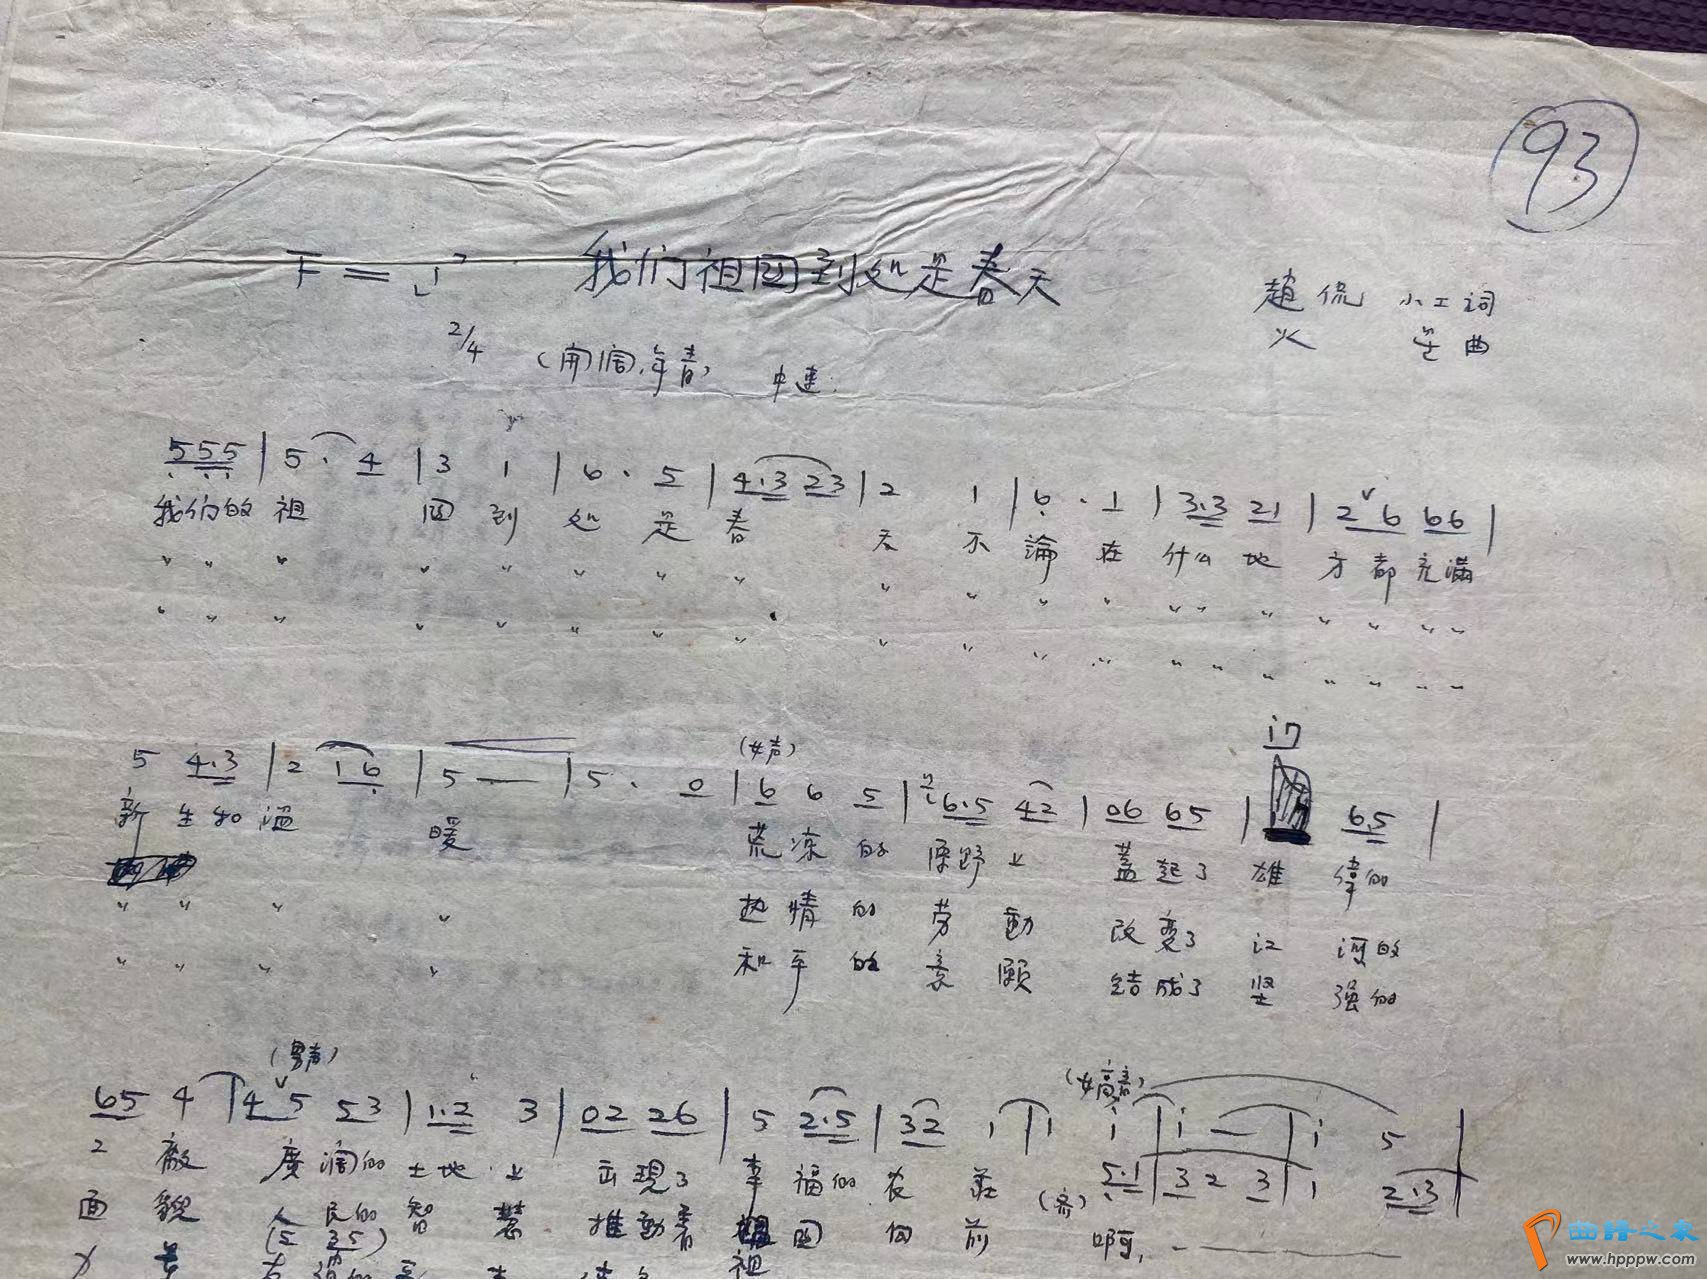 93
F=
我们祖国到处是春天
趙侃 小工词
2/4 (开阔、年青) 中速
火 星曲
555 | 5· 4 | 3 1 | 6· 5 | 4.3 23 | 2 1 | 6· 1 | 3.3 21 | 2 6 66 |
我们的祖 国到处是春 天不論在什么地方都充滿
i7
5 4.3 | 2 16 | 5 — | 5· 0 | 6 6 5 | 6.5 42 | 06 65 | 6.5 |
(女声)
新生的温 暖 荒凉的原野上 蓋起了雄偉的
热情的劳動 改变了江河的
和平的意願 结成了坚强的
(男声) (女高音)
65 4 | 4 5 53 | 1.2 3 | 02 26 | 5 2.5 | 32 1 | 1 i | i — | i 5 |
工廠 廣濶的土地上 出現了幸福的农莊
5.1 | 3 2 3 | 1 2.3 |
面貌 人民的智慧 推動着 祖国向前 (齐) 啊,
(5 35)
曲谱之家
www.hpppw.com